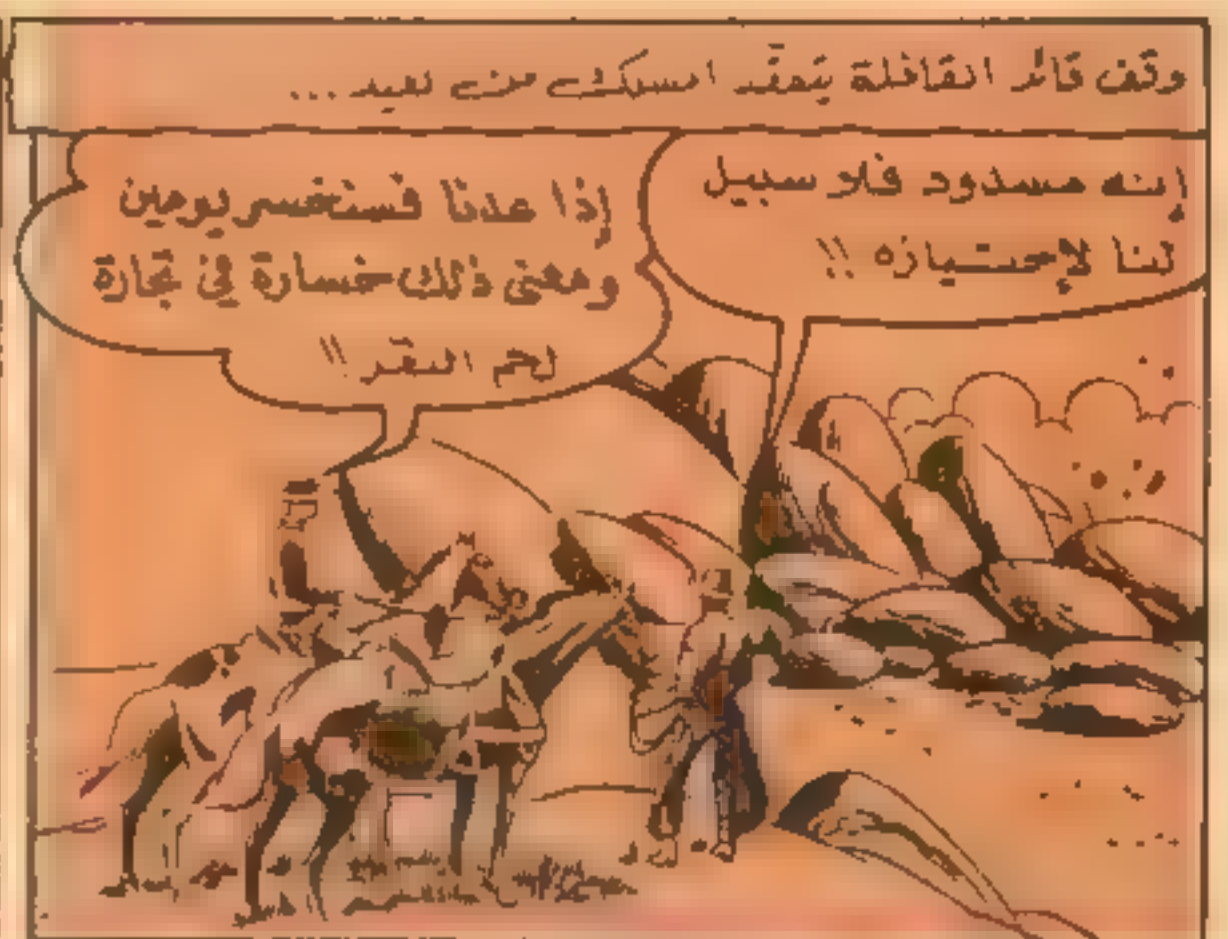 وقف قائد القافلة يتفقد المسلك من بعيد ...
إنه مسدود فلا سبيل
لنا لإجتيازه !!
إذا عدنا فسنخسر يومين
ومعنى ذلك خسارة في تجارة
لحم البقر !!